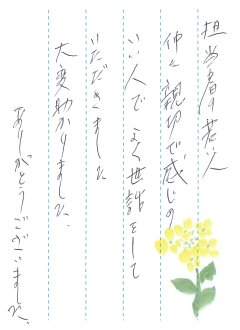 担当者の若い人
仲々親切で感じの
いい人でよく世話をして
いただきました
大変助かりました、
ありがとうございました。